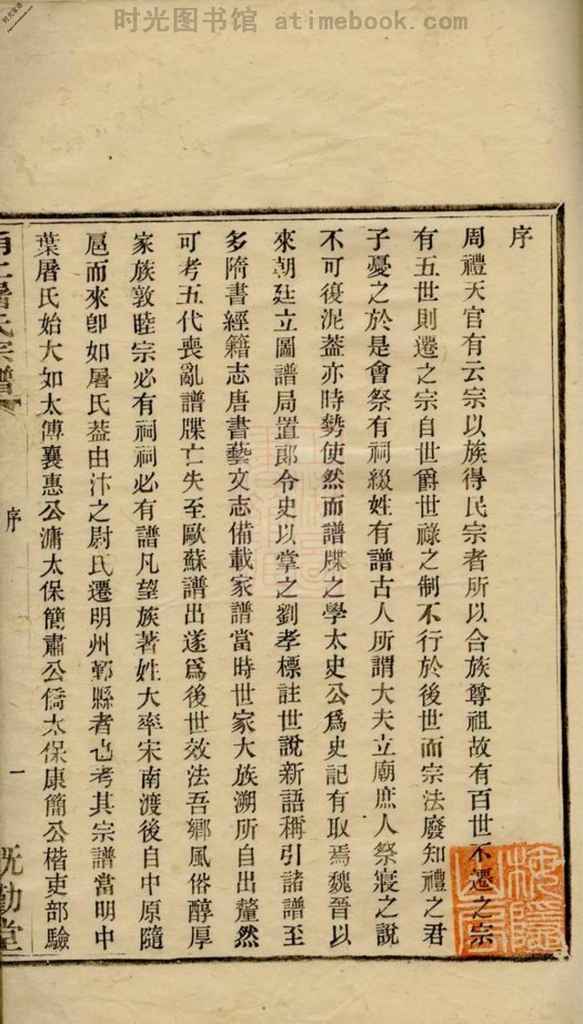 时光图书馆 atimebook.com
序
周禮天官有云宗以族得民宗者所以合族尊祖故有百世不遷之宗
有五世則遷之宗自世爵世祿之制不行於後世而宗法廢知禮之君
子憂之於是會祭有祠綴姓有譜古人所謂大夫立廟庶人祭寢之說
不可復泥葢亦時勢使然而譜牒之學太史公爲史記有取焉魏晉以
來朝廷立圖譜局置郎令史以掌之劉孝標註世說新語稱引諸譜至
多隋書經籍志唐書藝文志備載家譜當時世家大族溯所自出釐然
可考五代喪亂譜牒亡失至歐蘇譜出遂爲後世效法吾鄉風俗醇厚
家族敦睦宗必有祠祠必有譜凡望族著姓大率宋南渡後自中原隨
扈而來卽如屠氏葢由汴之尉氏遷明州鄞縣者也考其宗譜當明中
葉屠氏始大如太傅襄惠公滽太保簡肅公僑太保康簡公楷吏部驗
甬上屠氏宗譜
序
一
既勤堂